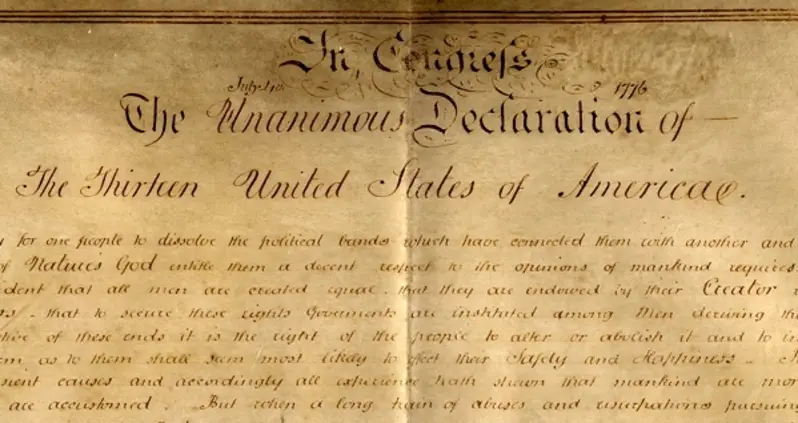 In Congress
July 4th 1776
The Unanimous Declaration of
The Thirteen United States of America.
for one people to dissolve the political bands which have connected them with another and
of Nature's God entitle them a decent respect to the opinions of mankind requires
ident that all men are created equal. that they are endowed by their Creator
that to secure these rights Goverments are instituted among Men deriving the
tive of these ends it is the right of the people to alter or abolish it and to in
em as to them shall seem most likely to effect their Safety and Happiness.
sient causes and accordingly all experience hath shown that mankind are mor
are accustomed. But when a long train of abuses and usurpations pursuing